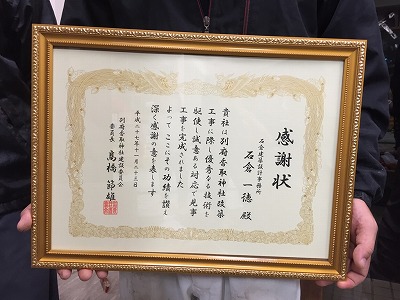 感謝状
石倉建築設計事務所
石倉 一徳 殿
貴社は別府香取神社改築
工事に際し優秀なる技術を
駆使し誠意ある対応で見事
工事を完成されました
よってここにその功績を讃え
深く感謝の意を表します
平成二十七年十一月二十三日
別府香取神社建設委員会
委員長 高橋 節雄